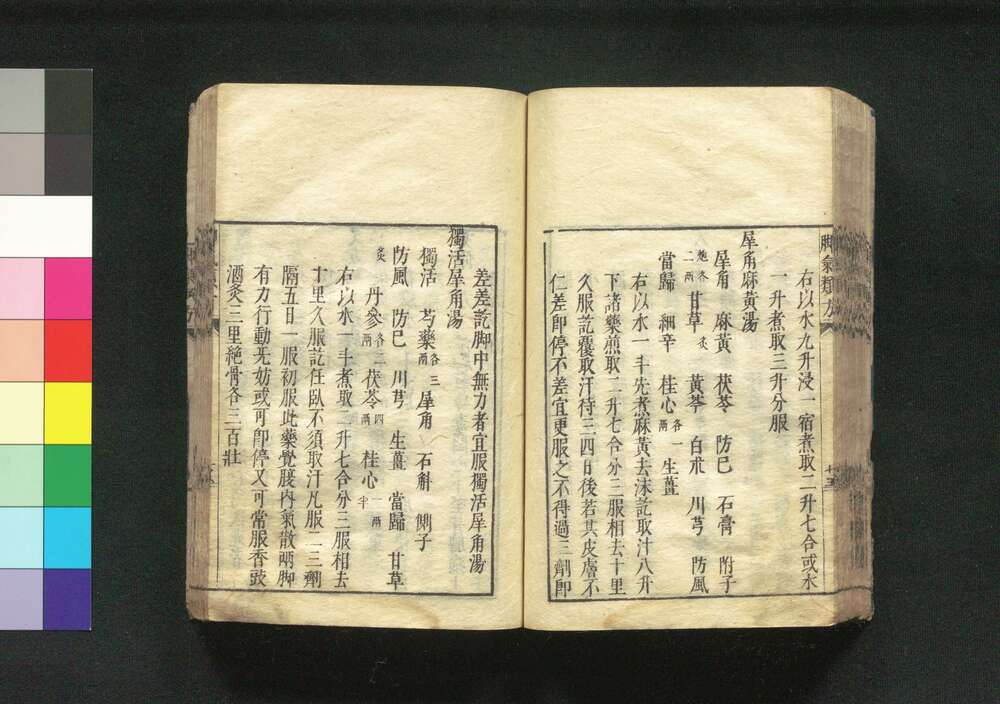 脚氣類方
右以水九升浸一宿煮取二升七合或水
一升煮取三升分服
犀角麻黃湯
犀角 麻黃 茯苓 防巳 石膏 附子
炮各二兩 甘草 炙 黃芩 白朮 川芎 防風
當歸 細辛 桂心 各一兩 生薑
右以水一斗先煮麻黃去沫訖取汁八升
下諸藥煎取二升七合分三服相去十里
久服訖覆取汗待三四日後若其皮膚不
仁差即停不差宜更服之不得過三劑即
差差訖脚中無力者宜服獨活犀角湯
獨活犀角湯
獨活 芍藥 各三兩 犀角 石斛 側子
防風 防巳 川芎 生薑 當歸 甘草
炙 丹參 各二兩 茯苓 四兩 桂心 一兩半
右以水一斗煮取二升七合分三服相去
十里久服訖任臥不須取汗凡服二三劑
隔五日一服初服此藥覺腰內氣散兩脚
有力行動无妨或可即停又可常服香豉
酒灸三里絕骨各三百壯